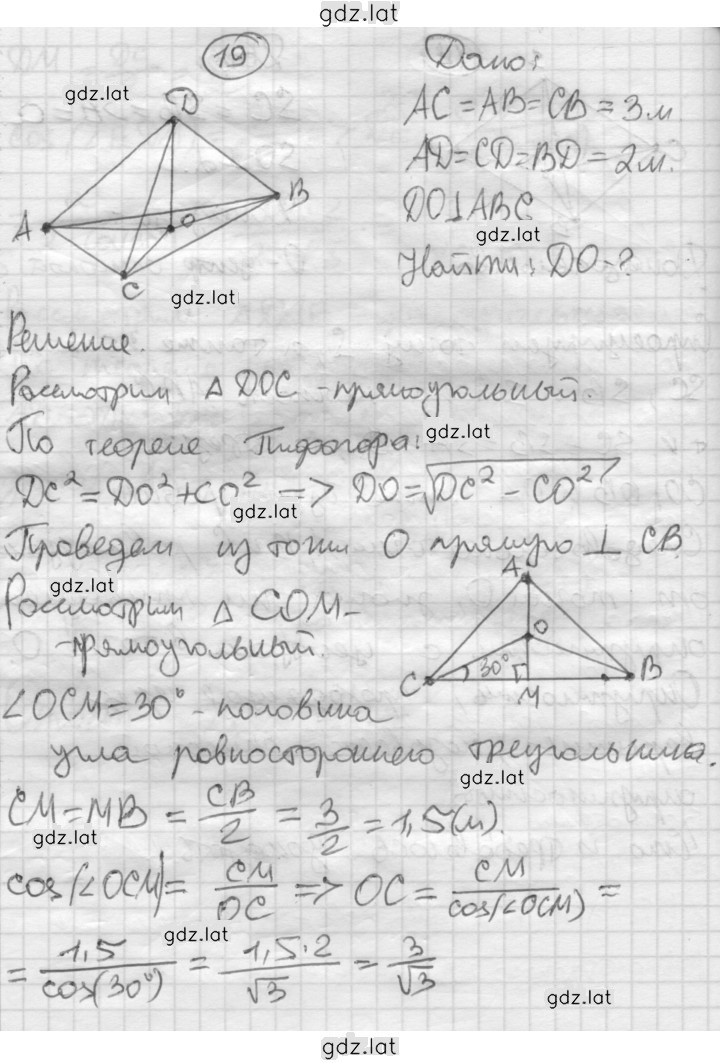 gdz.lat
19
Дано:
gdz.lat
D
AC = AB = CB = 3 м
AD = CD = BD = 2 м.
B
A
O
DO ⊥ ABC
gdz.lat
C
Найти: DO - ?
gdz.lat
Решение.
Рассмотрим △ DOC - прямоугольный.
По теореме Пифагора:
gdz.lat
DC² = DO² + CO² => DO = √DC² - CO²
gdz.lat
Проведем из точки O прямую ⊥ CB
gdz.lat
A
Рассмотрим △ COM -
- прямоугольный.
O
C
30°
B
M
∠OCM = 30° - половина
угла равностороннего треугольника.
gdz.lat
CM = MB = CB/2 = 3/2 = 1,5 (м).
gdz.lat
cos(∠OCM) = CM/OC => OC = CM/cos(∠OCM) =
gdz.lat
= 1,5/cos(30°) = 1,5·2/√3 = 3/√3
gdz.lat
gdz.lat